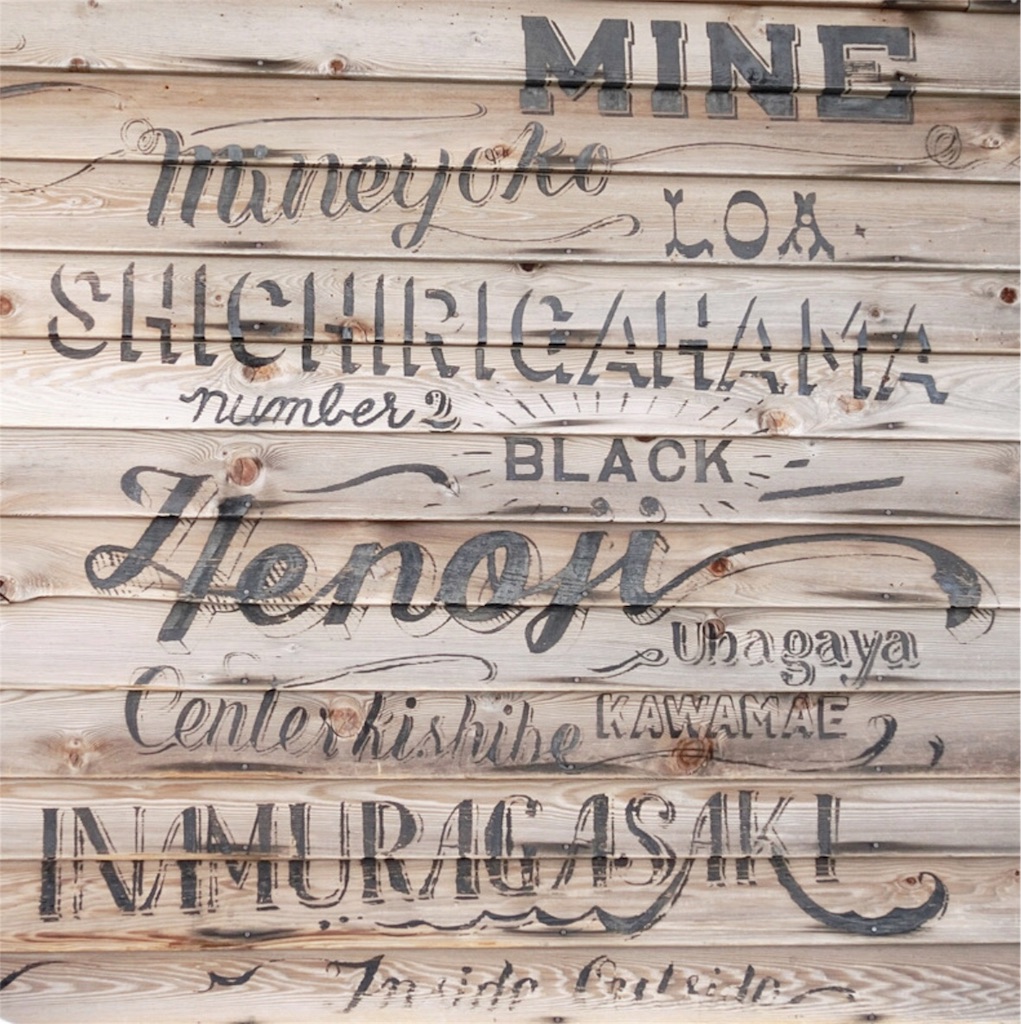 MINE
Mineyoko
LOA.
SHICHIRIGAHAMA
number 2
BLACK
Henoji
Ubagaya
Center kishibe KAWAMAE
INAMURAGASAKI
Inside Outside